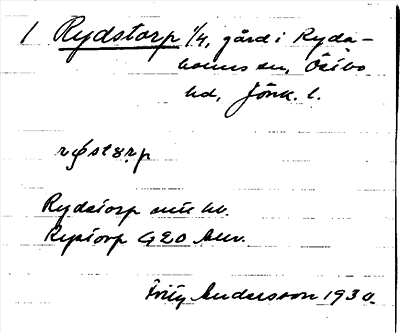 1 Rydstorp 1/4, gård i Ryda-
holms sn, Östbo
hd, Jönk. l.
Rydstorp
Rystorp G20
Fritz Andersson 1930.